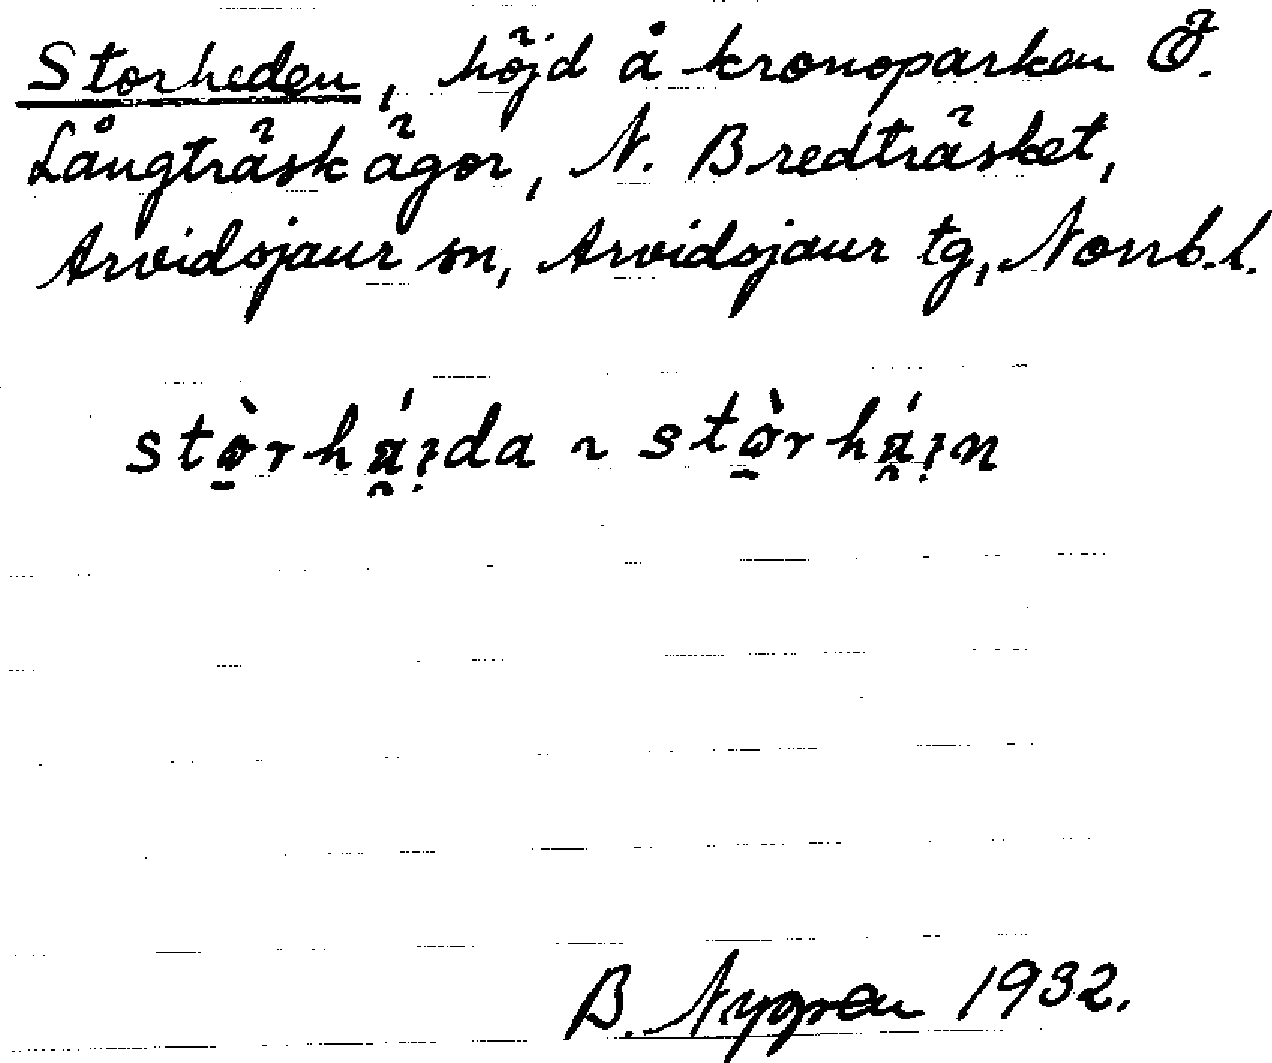 Storheden, höjd å kronoparken Ö.
Långträsk ägor, N. Bredträsket,
Arvidsjaur sn, Arvidsjaur tg, Norrb. l.
B. Nygren 1932.